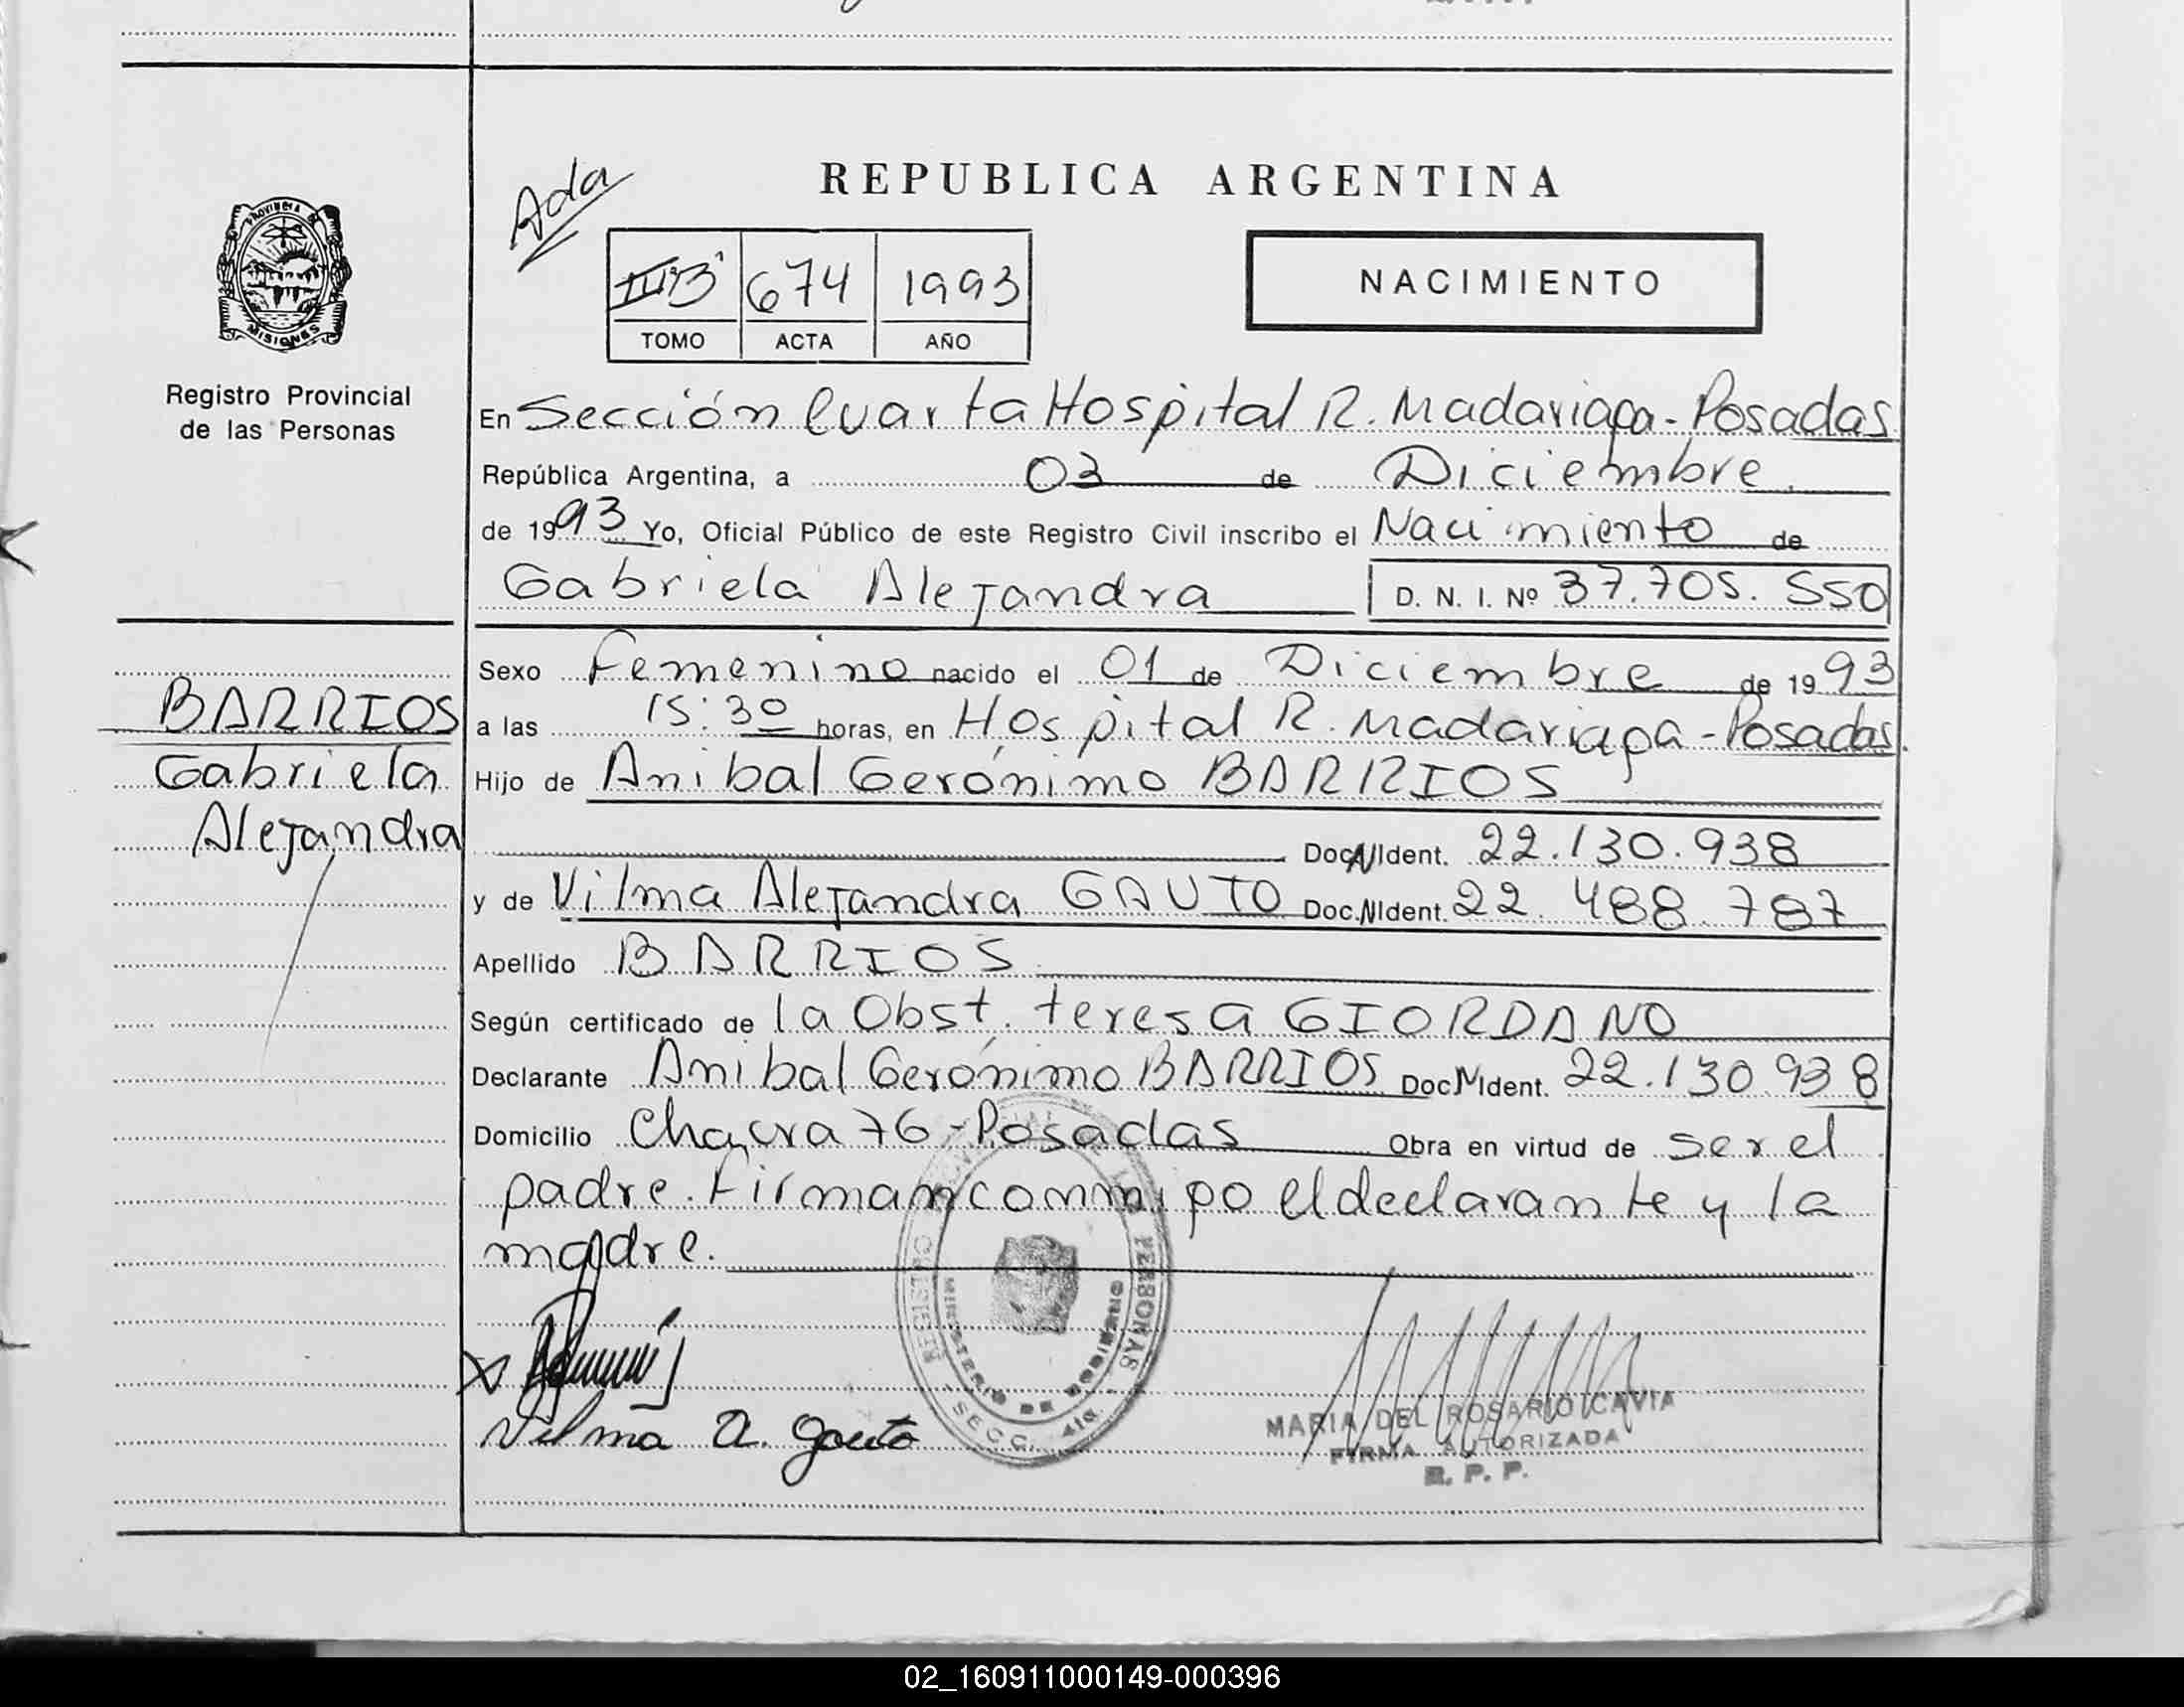 REPUBLICA ARGENTINA
Ada
674 1993
TOMO ACTA AÑO
NACIMIENTO
PROVINCIA DE
MISIONES
Registro Provincial
de las Personas
En Sección Cuarta Hospital R. Madariaga - Posadas
República Argentina, a 03 de Diciembre
de 1993 Yo, Oficial Público de este Registro Civil inscribo el Nacimiento de
Gabriela Alejandra D. N. I. Nº 37.705.550
Sexo Femenino nacido el 01 de Diciembre de 1993
BARRIOS
Gabriela
Alejandra
a las 15:30 horas, en Hospital R. Madariaga - Posadas.
Hijo de Anibal Gerónimo BARRIOS
Doc.N.Ident. 22.130.938
y de Vilma Alejandra GAUTO Doc.N.Ident. 22.488.787
Apellido BARRIOS
Según certificado de la Obst. teresa GIORDANO
Declarante Anibal Gerónimo BARRIOS Doc.N.Ident. 22.130.938
Domicilio Chacra 76 - Posadas Obra en virtud de ser el
padre. Firman conmigo el declarante y la
madre.
Vilma A. Gauto
MARIA DEL ROSARIO CAVIA
FIRMA AUTORIZADA
R. P. P.
REGISTRO PERSONAS
MINISTERIO DE GOBIERNO
SECC. 4ta.
02_160911000149-000396